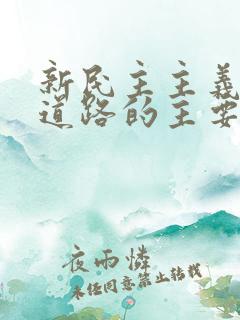 新民主主义
道路的主要
夜雨怜
未经同意禁止转载